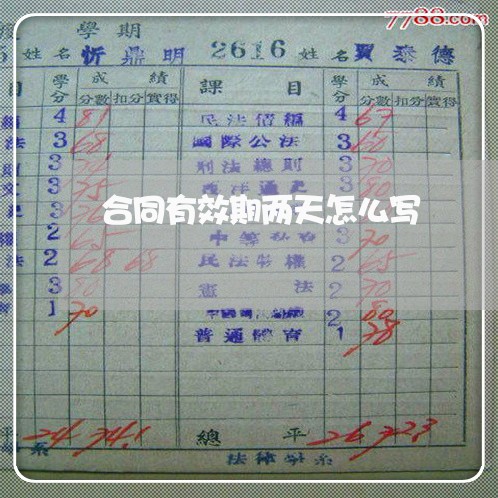 7788.com
學期
姓名 忻鼎明 2616 姓名 賈泰德
目 學分 成績 課目 學分 成績
分數 扣分 實得 分數 扣分 實得
4 81 民法債編 4 67
法 3 68 國際公法 3 60
3 刑法總則 3 70
3 75 3 80
合同有效期两天怎么写
2 65 3 70
法 2 68 68 民法物權 2 65
3 80 憲法 2 70
1 70 2 80
普通體育 1 78
平 24 74.1 總平 26 72.3
系 法律學系